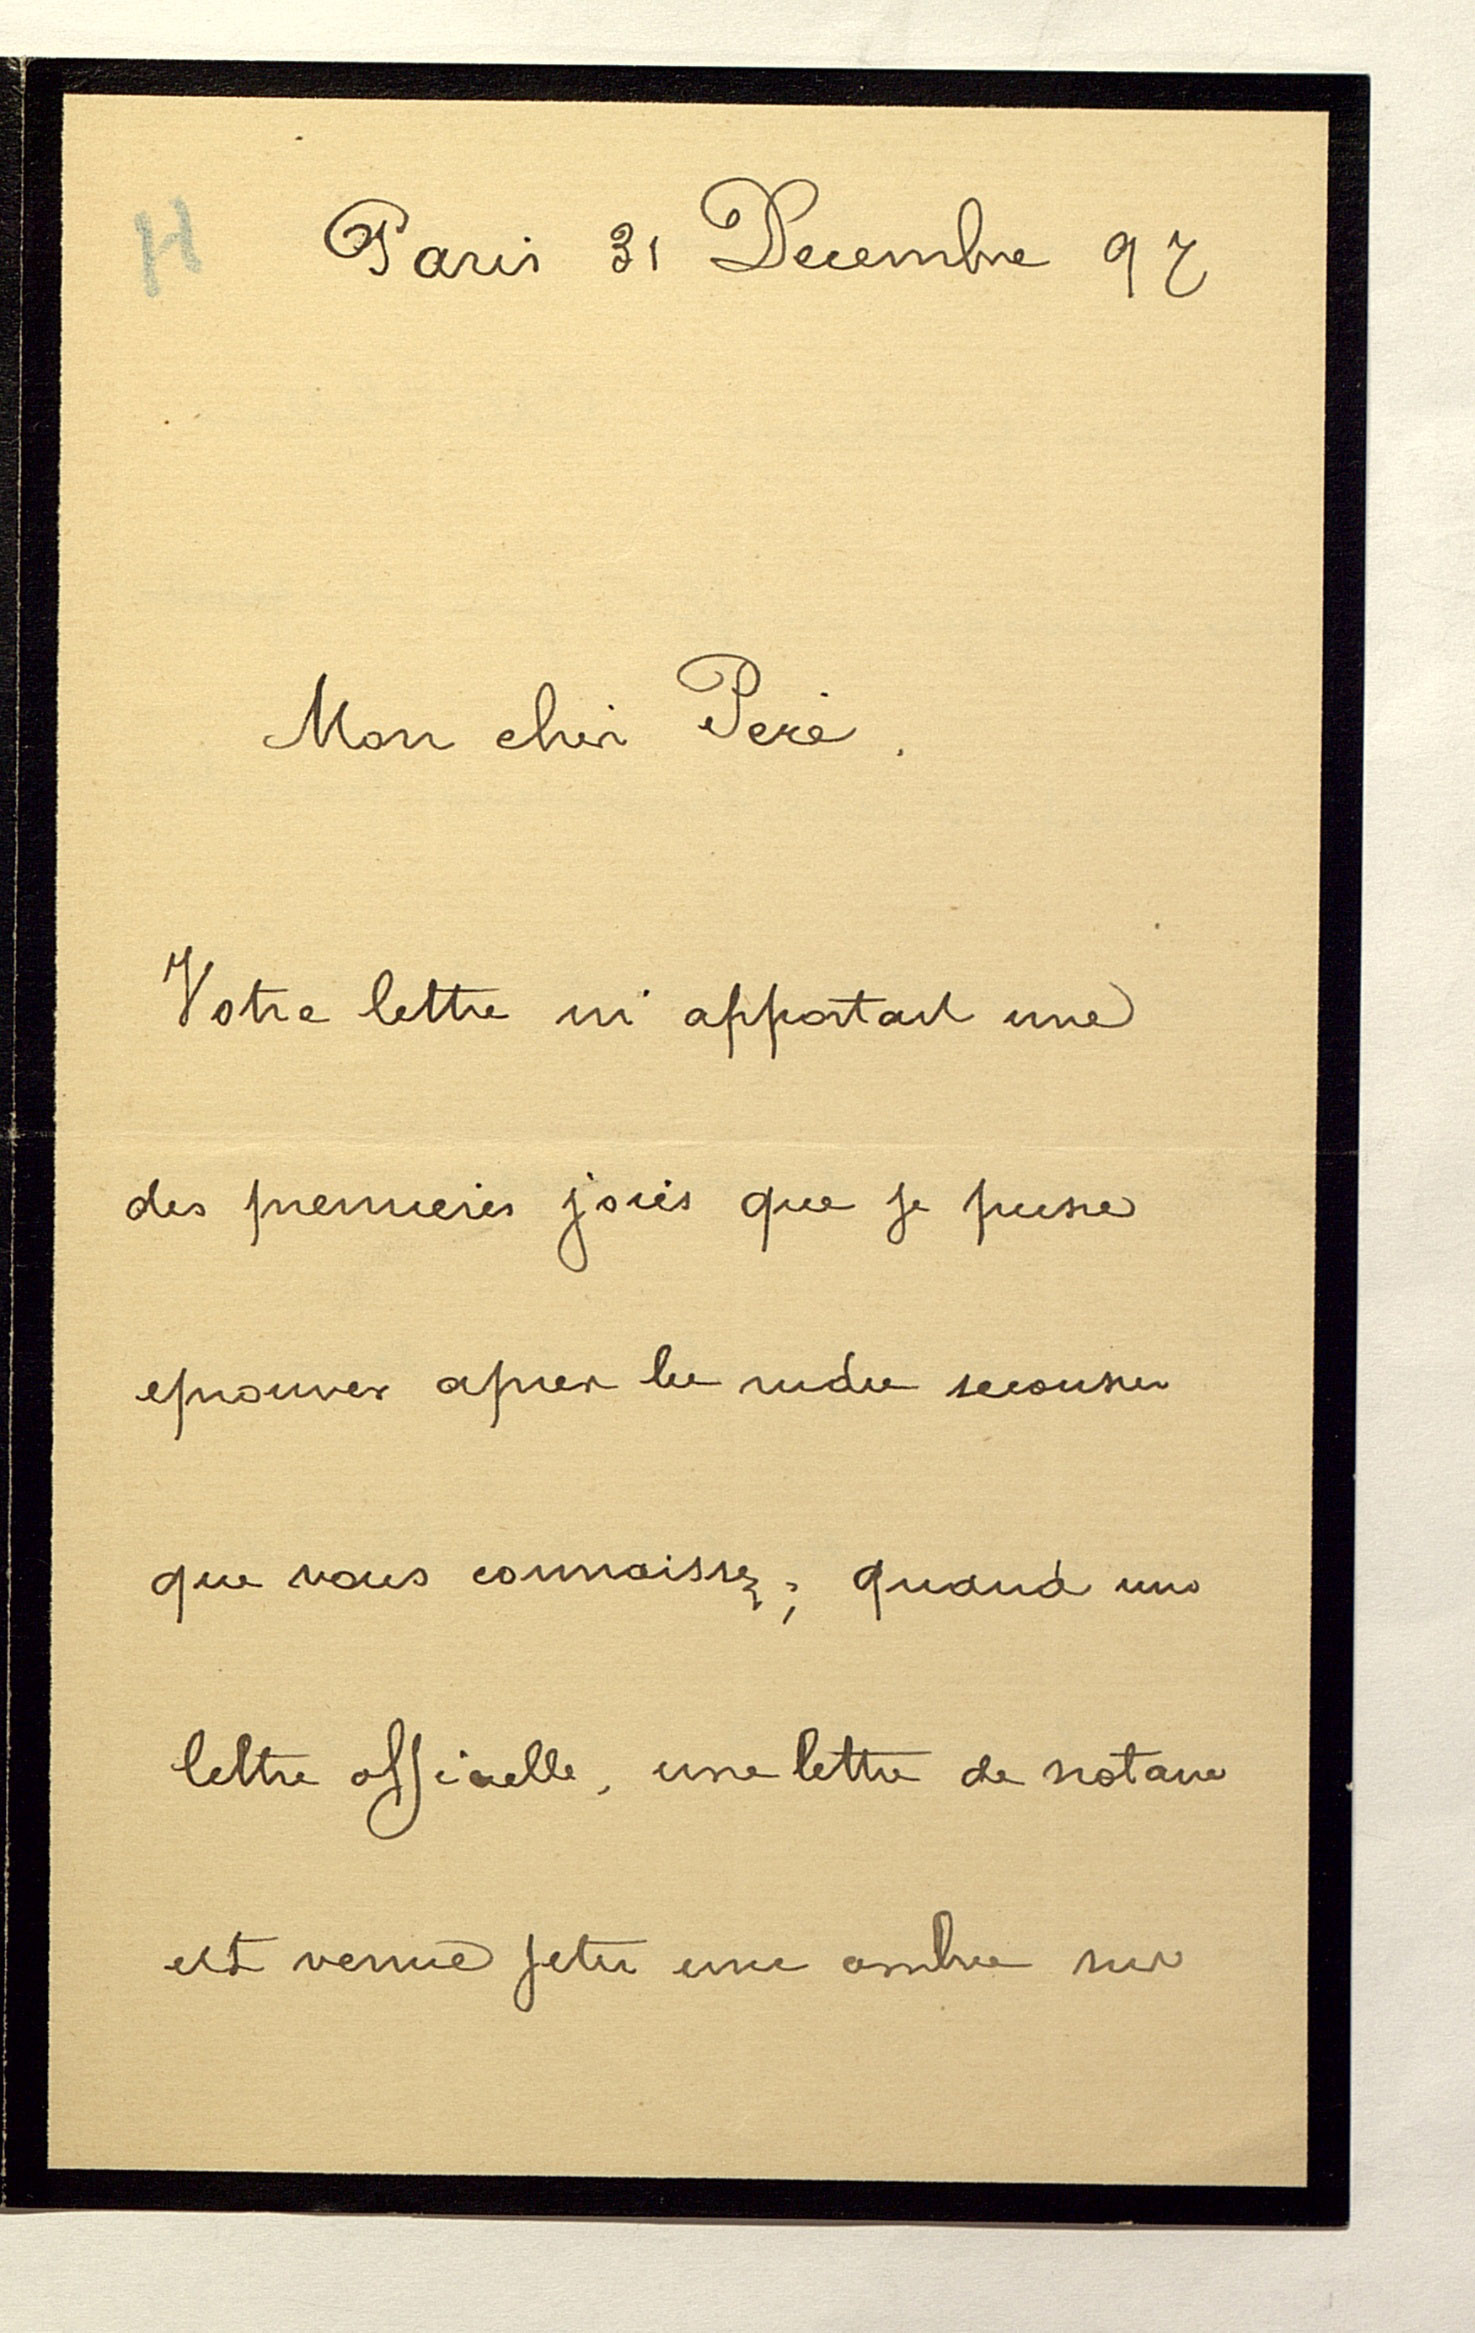 H
Paris 31 Decembre 97
Mon cher Pere.
Votre lettre m'apportait une
des premieres joies que je puisse
eprouver apres les rudes secousses
que vous connaissez; quand une
lettre officielle, une lettre de notaire
est venue jeter une ombre sur